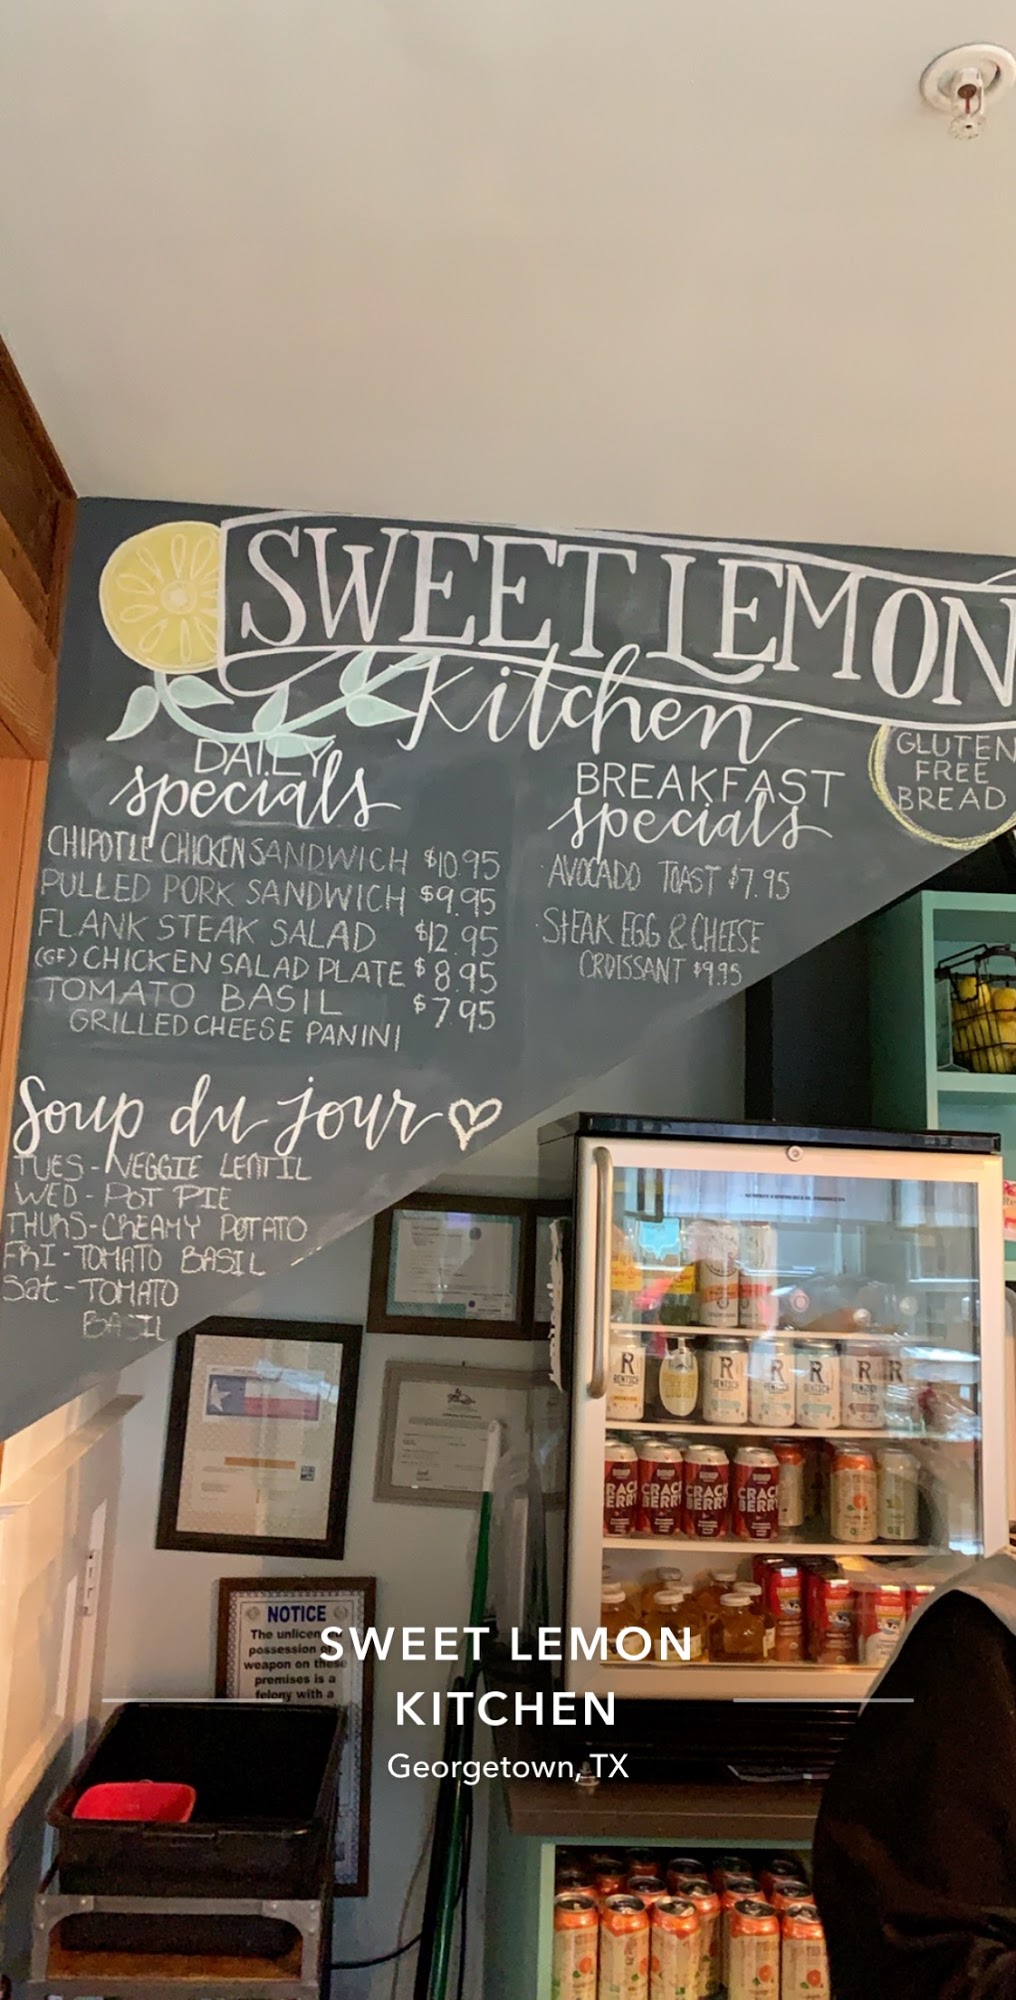 SWEET LEMON
Kitchen
DAILY
specials
CHIPOTLE CHICKEN SANDWICH $10.95
PULLED PORK SANDWICH $9.95
FLANK STEAK SALAD $12.95
(GF) CHICKEN SALAD PLATE $8.95
TOMATO BASIL $7.95
GRILLED CHEESE PANINI
BREAKFAST
specials
AVOCADO TOAST $7.95
STEAK EGG & CHEESE
CROISSANT $9.95
GLUTEN
FREE
BREAD
Soup du jour
TUES - VEGGIE LENTIL
WED - POT PIE
THURS - CREAMY POTATO
FRI - TOMATO BASIL
Sat - TOMATO
BASIL
R
R
R
R
R
R
CRACK
BERRY
CRACK
BERRY
CRACK
BERRY
CRACK
BERRY
NOTICE
The unlicensed
possession of
weapon on these
premises is a
felony with a
SWEET LEMON
KITCHEN
Georgetown, TX